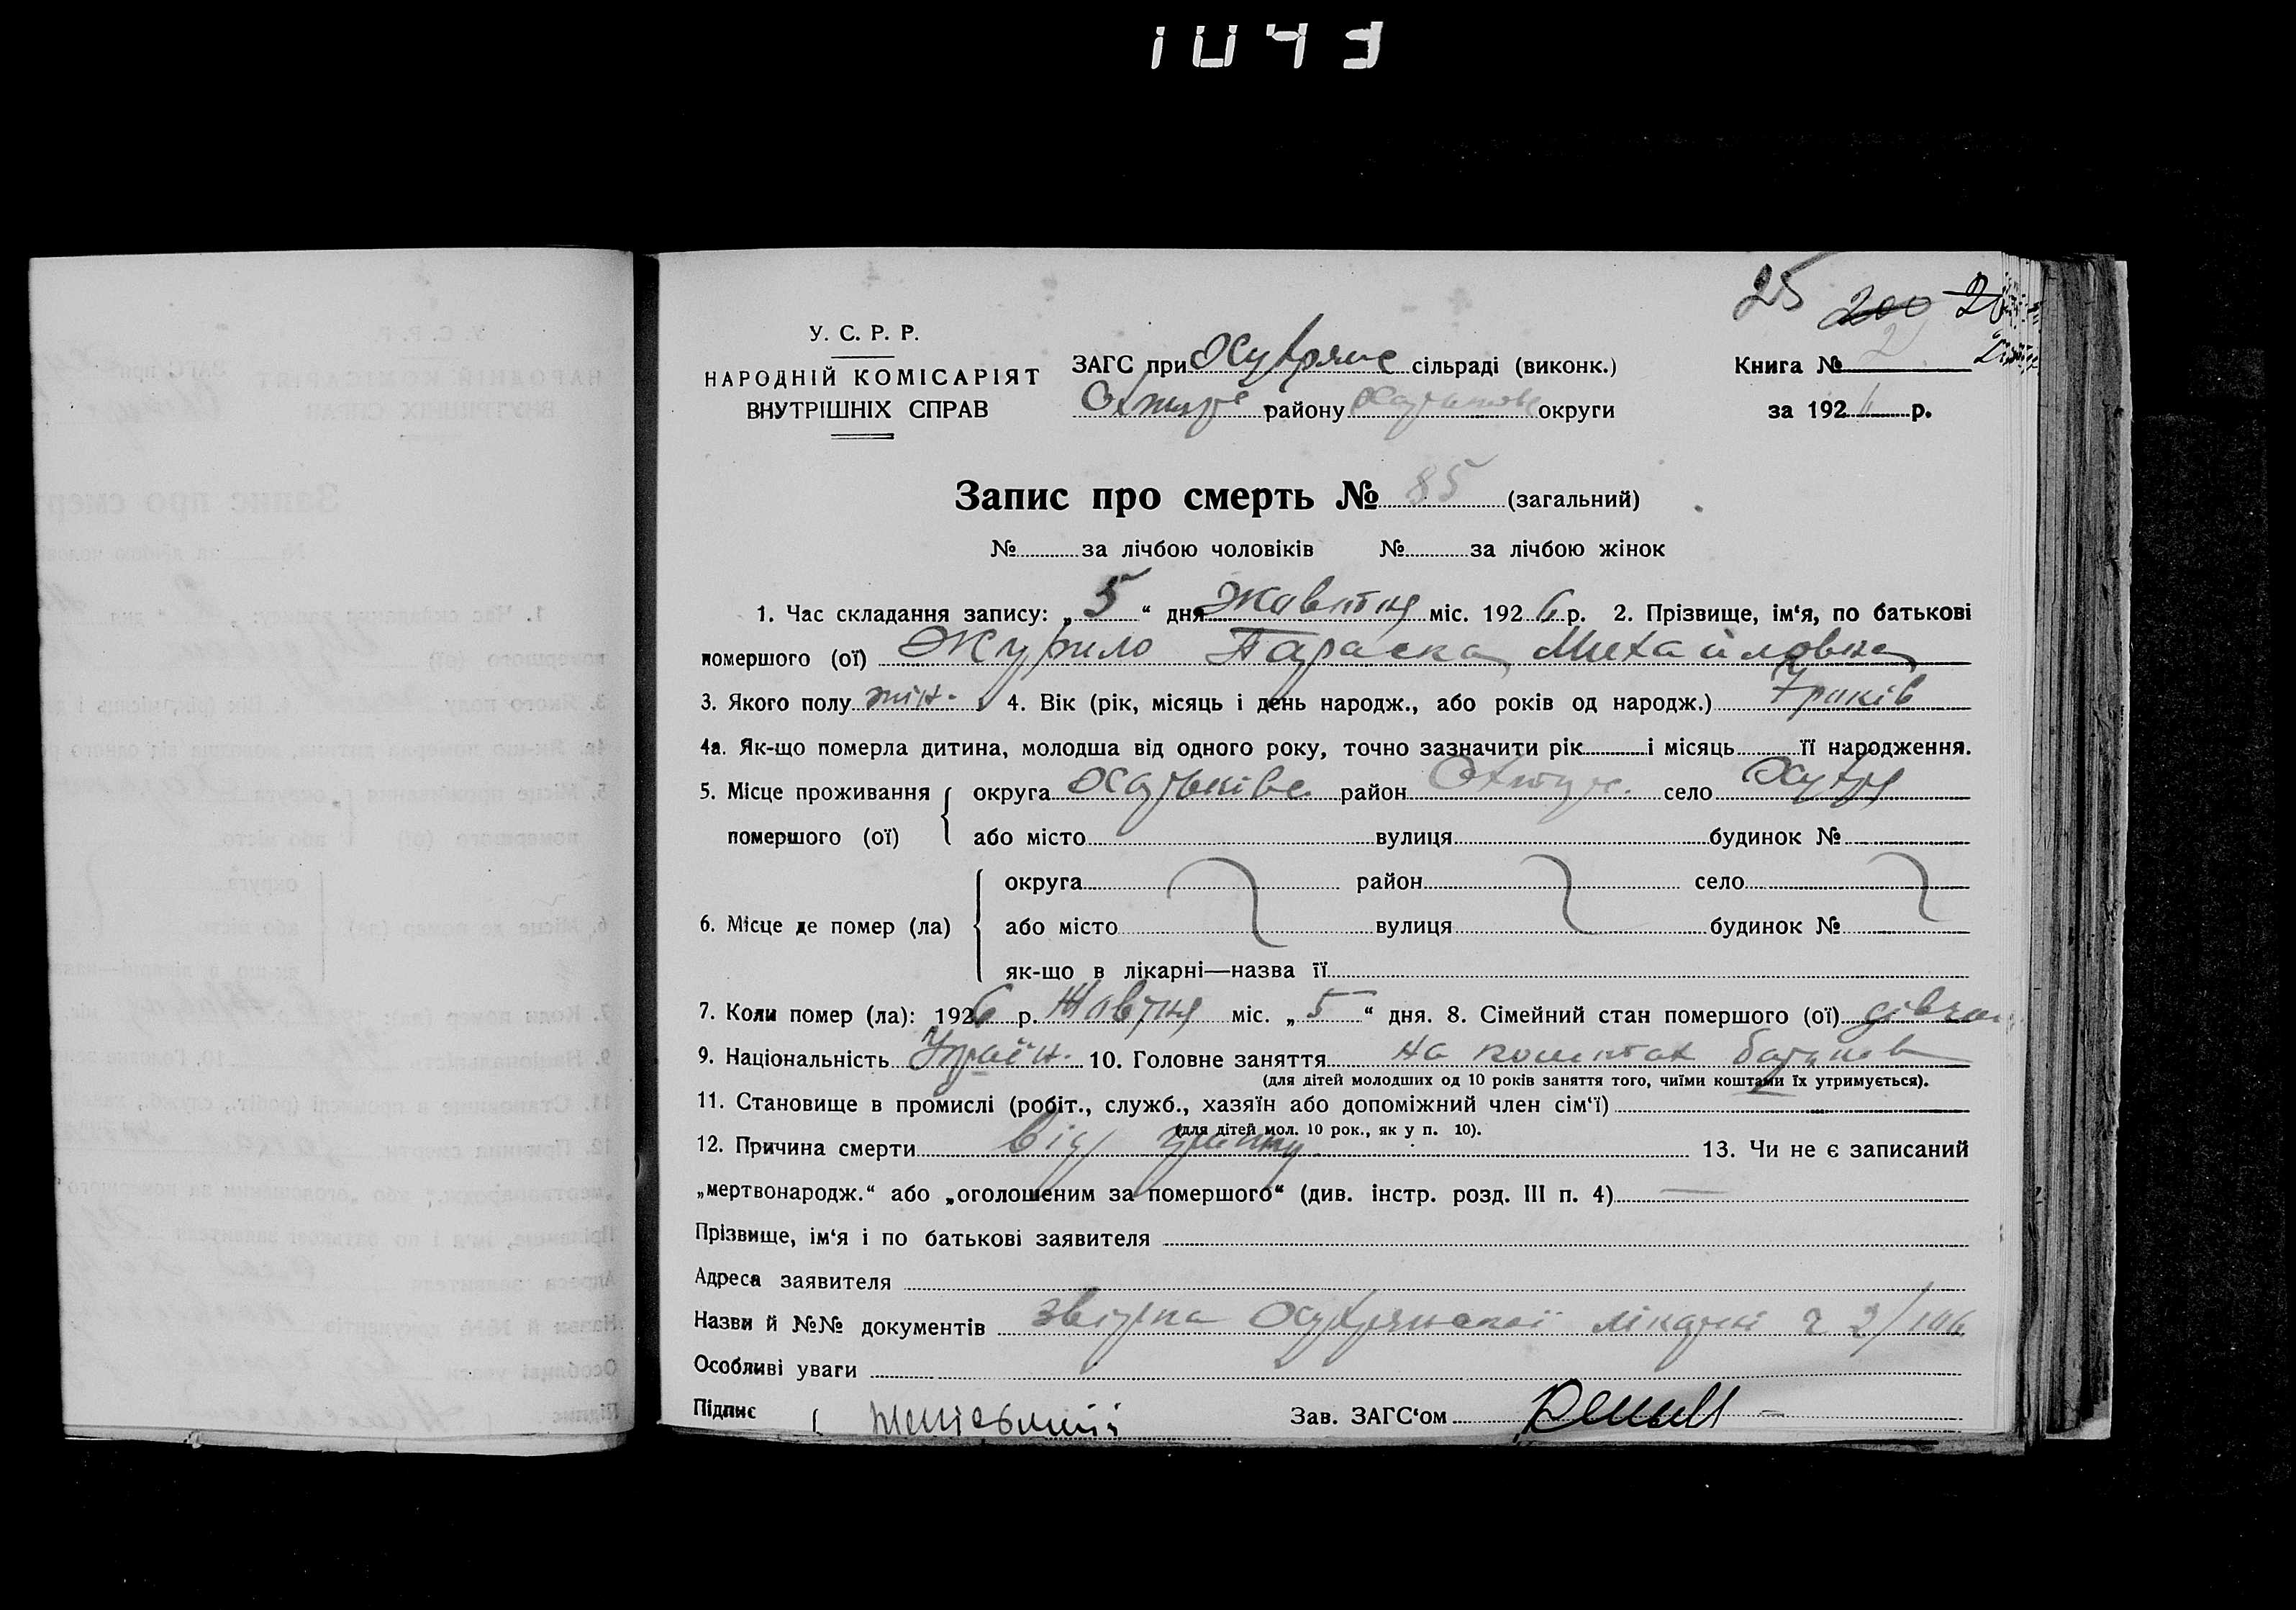 1043
25 200
У. С. Р. Р.
НАРОДНІЙ КОМІСАРІЯТ
ВНУТРІШНІХ СПРАВ
ЗАГС при Хухряне сільраді (виконк.)
району округи
Книга № 2
за 192 р.
Запис про смерть № 85 (загальний)
№ за лічбою чоловіків № за лічбою жінок
1. Час складання запису: „ 5 “ дня Жовтня міс. 192 6 р. 2. Прізвище, ім‘я, по батькові
помершого (ої) Журило Параска Михайловна
3. Якого полу жін. 4. Вік (рік, місяць і день народж., або років од народж.) 7 років
4а. Як-що померла дитина, молодша від одного року, точно зазначити рік і місяць її народження.
5. Місце проживання округа Харьківс район Охтир. село Хухря
помершого (ої) або місто вулиця будинок №
округа район село
6. Місце де помер (ла) або місто вулиця будинок №
як-що в лікарні—назва її
7. Коли помер (ла): 192 6 р. Жовтня міс. „ 5 “ дня. 8. Сімейний стан помершого (ої)
9. Національність Україн. 10. Головне заняття на коштах батьків
(для дітей молодших од 10 років заняття того, чиїми коштами їх утримується).
11. Становище в промислі (робіт., служб., хазяїн або допоміжний член сім‘ї)
(для дітей мол. 10 рок., як у п. 10).
12. Причина смерти від 13. Чи не є записаний
„мертвонародж.“ або „оголошеним за помершого“ (див. інстр. розд. III п. 4) —
Прізвище, ім‘я і по батькові заявителя
Адреса заявителя
Назви й №№ документів Хухрянської лікарні
Особливі уваги
Підпис
Зав. ЗАГС‘ом